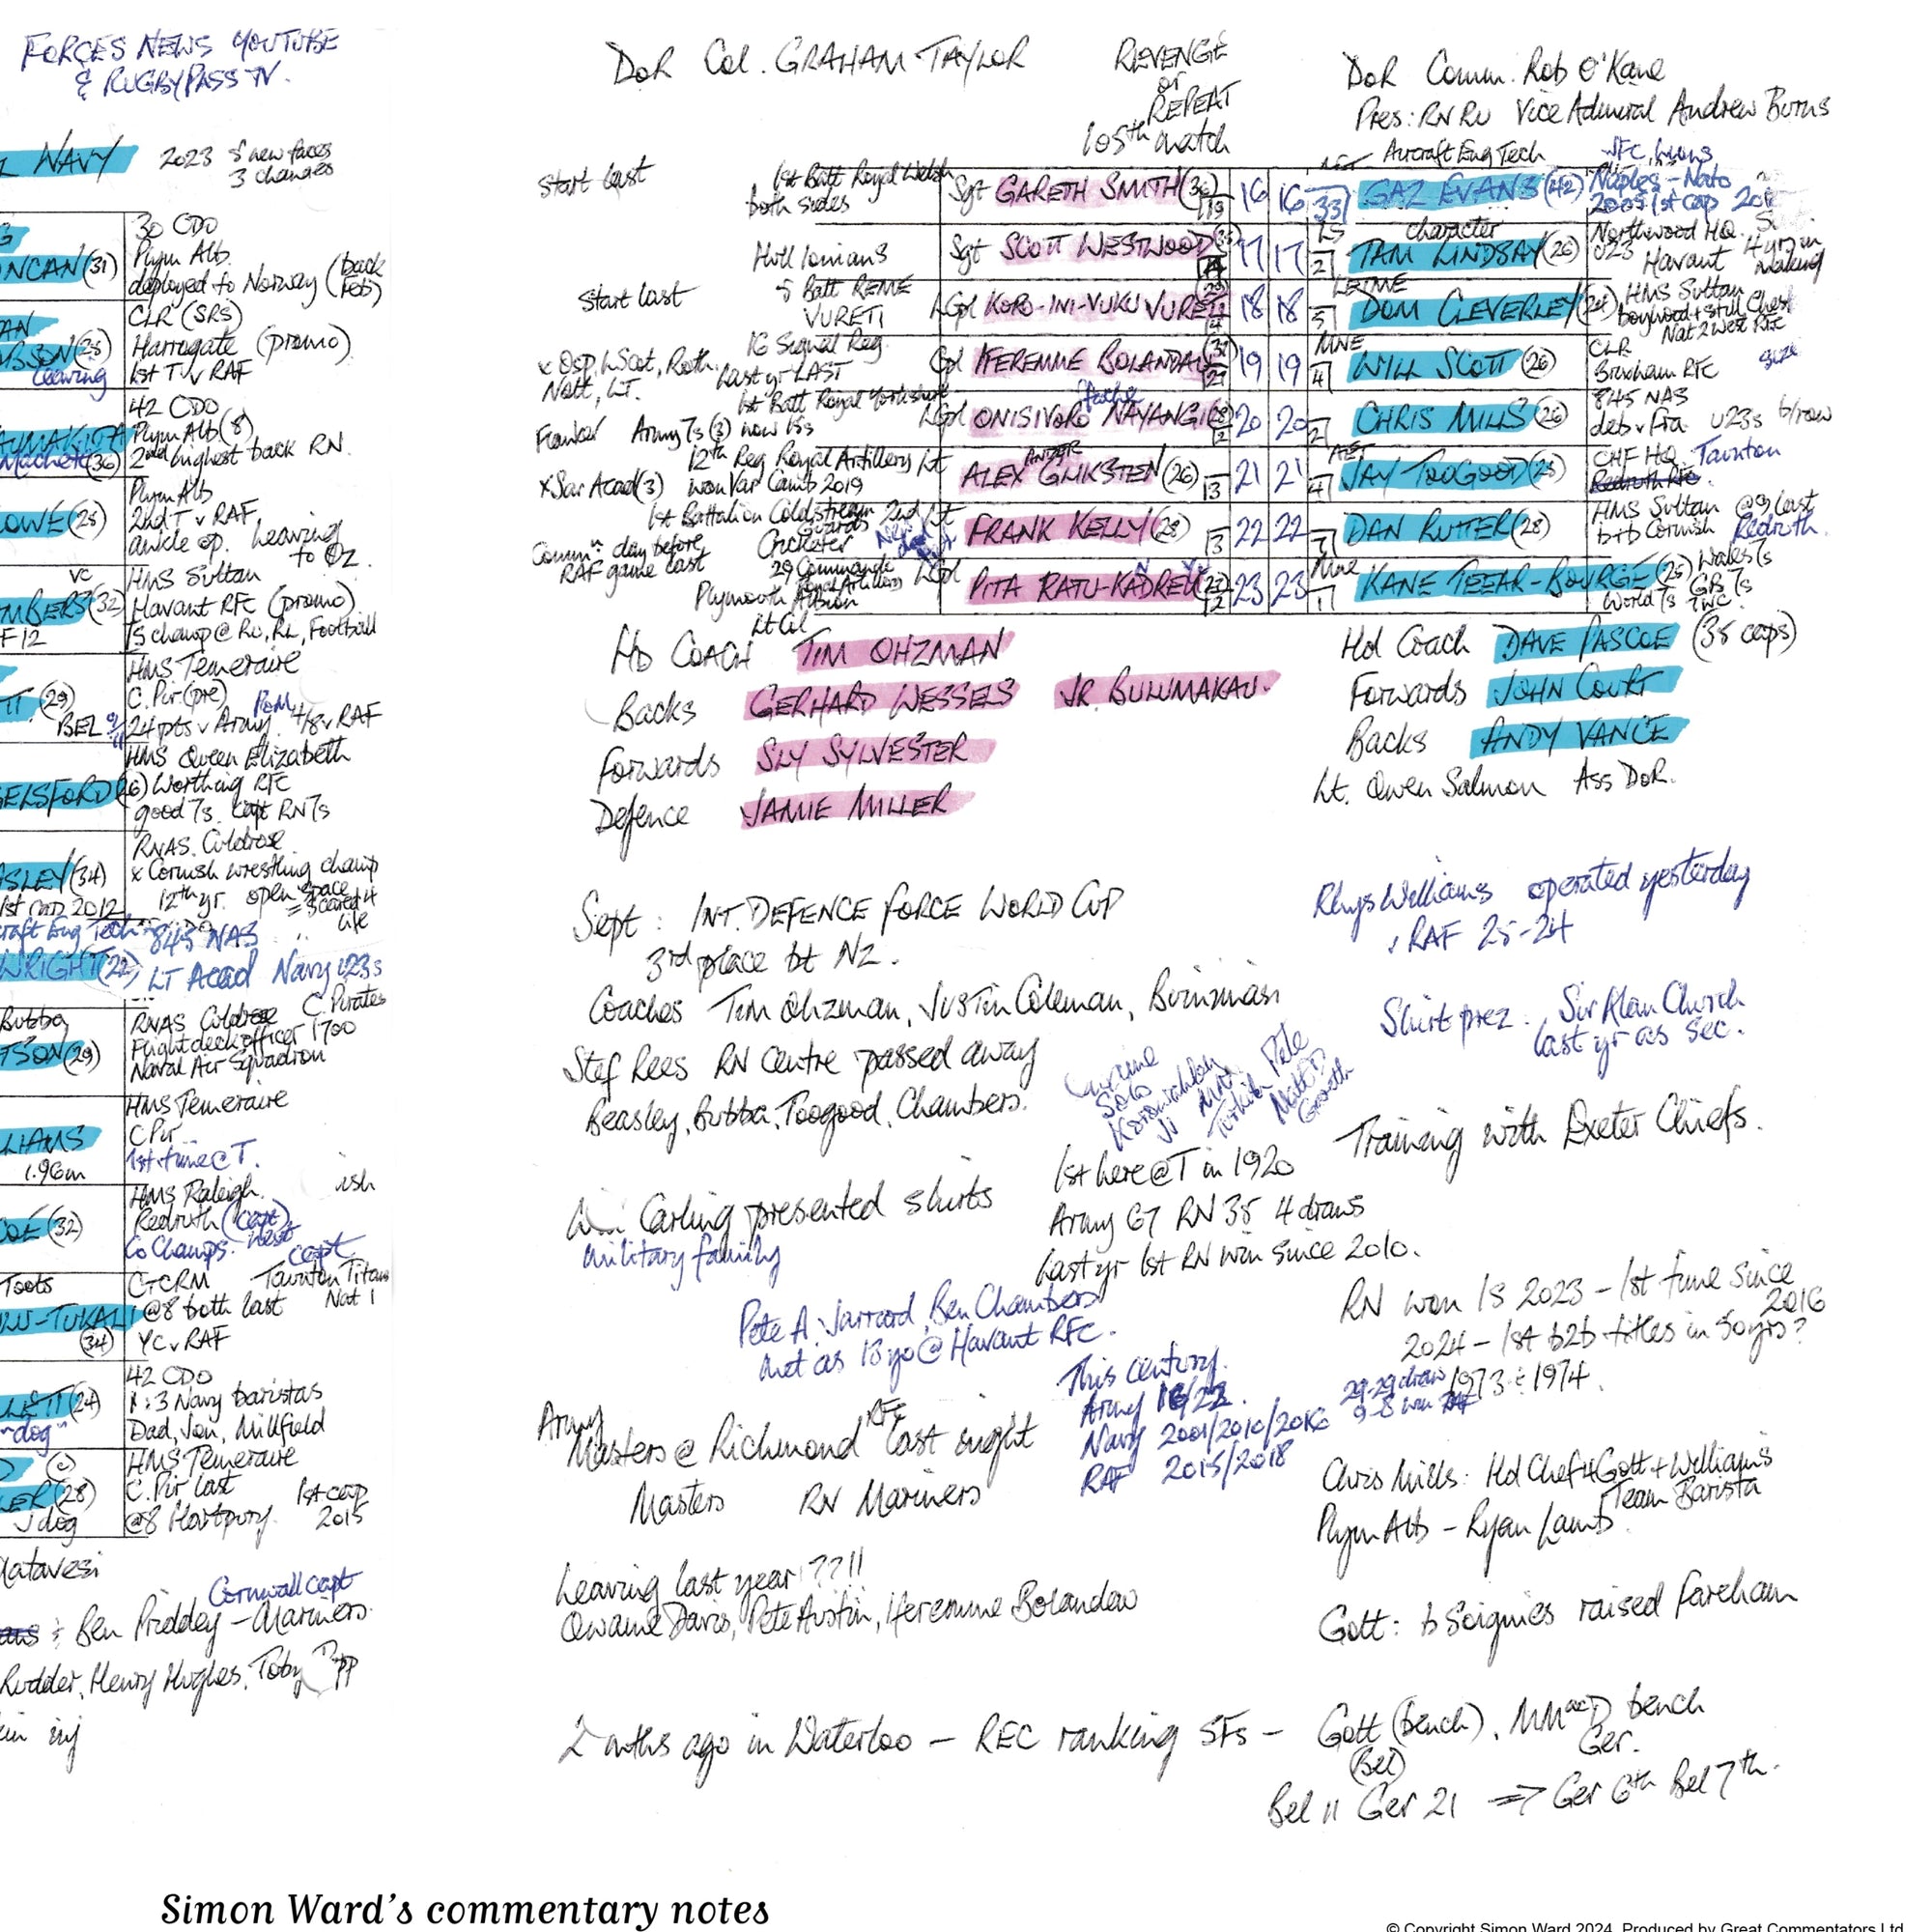 FORCES NEWS YOUTUBE
& RUGBYPASS TV.
NAVY 2023 5 new faces
3 changes
30 CDO
NCAN (31) Plym Alb.
deployed to Norway (back
CLR (SRS)
Harrogate (promo)
leaving 1st T v RAF
42 CDO
Plym Alb (8)
Machete (36) 2nd highest back RN
Plym Alb
OWE (25) 2nd T v RAF
ankle op. leaving
to Oz.
VC HMS Sultan
MBERS (32) Havant RFC (promo)
F12 7s champ @ RU, RL, Football
HMS Temeraire
TT (29) C. Pir (pre)
BEL 24 pts v Army 4/8 v RAF
HMS Queen Elizabeth
ELSFORD (26) Worthing RFC
good 7s. Capt RN 7s
RNAS. Culdrose
SLEY (34) x Cornish wrestling champ
12th yr. open space
1st cap 2012 = scared 4
life
craft Eng Tech 845 NAS
WRIGHT (22) LT Acad Navy U23s
Bubba RNAS Culdrose C. Pirates
TSON (29) Flight deck officer 1700
Naval Air Squadron
HMS Temeraire
LIAMS C Pir
1.96m 1st time @ T.
HMS Raleigh.
OE (32) Redruth (Capt)
Co Champs. West
Capt
Toots CTCRM Taunton Titans
LU-TUKALI @8 both last Nat 1
(34) YC v RAF
42 CDO
LETT (24) 1:3 Navy baristas
dog" Dad, Jon, Millfield
(C) HMS Temeraire
LER (28) C. Pir last 1st cap
J dog @8 Hartpury 2015
Matavesi
Cornwall capt
Ben Priddey - Mariners
Rudder, Henry Hughes, Toby
inj
DoR Col. GRAHAM TAYLOR
REVENGE
or
REPEAT
105th match
DoR Comm. Rob O'Kane
Pres: RNRU Vice Admiral Andrew Burns
start last 1st Batt Royal Welsh Sgt GARETH SMITH (36) 16 16 33 GAZ EVANS (42) Naples - Nato
both sides 19 AET Aircraft Eng Tech
Hull Ionians Sgt SCOTT WESTWOOD 17 17 2 LS TAM LINDSAY (26) Northwood HQ.
character U23 Havant 4 yrs in
making
Start last 5 Batt REME LCpl KORO-INI-VUKU VURETI 18 18 5 DOM CLEVERLEY (24) HMS Sultan
VURETI boyhood + still Chest
Nat 2 West RFC
16 Signal Reg Cpl IFEREMME BOLANDAU 19 19 4 MNE WILL SCOTT (26) CLR size
x Osp, L Scot, Roth. Last yr LAST Brixham RFC
Nott, LT.
1st Batt Royal Yorkshire LCpl ONISIVORO NAYANGI 20 20 2 CHRIS MILLS (26) 845 NAS
Flanker Army 7s (3) now 15s deb v Fra. U23s b/row
12th Reg Royal Artillery Lt ALEX GLIKSTEN (26) 13 21 21 4 AET JAY TOOGOOD (25) CHF HQ Taunton
x Sar Acad (3) won Var Camb 2019 Redruth RFC
1st Battalion Coldstream Guards 2nd Lt FRANK KELLY (28) 3 22 22 7 DAN RUTTER (28) HMS Sultan @9 last
Comm'n day before Cricketer b+b Cornish Redruth.
RAF game last
29 Commando Royal Artillery LCpl PITA RATU-KADREU 12 23 23 1 Mne KANE TEEAR-BOURGE (25) Wales 7s
Plymouth Albion GB 7s
World 7s
Lt Col
HD COACH TIM OHZMAN
Backs GERHARD WESSELS JR. BULUMAKAU.
Forwards SLY SYLVESTER
Defence JAMIE MILLER
Hd Coach DAVE PASCOE (35 caps)
Forwards JOHN COURT
Backs ANDY VANCE
Lt. Owen Salmon Ass DoR.
Sept: INT. DEFENCE FORCE WORLD CUP
3rd place bt NZ.
Coaches Tim Ohzman, Justin Coleman,
Stef Rees RN Centre passed away
Beasley, Bubba, Toogood, Chambers.
Rhys Williams operated yesterday
v RAF 25-24
Shirt prez. Sir Alan Church
last yr as sec.
Training with Exeter Chiefs.
1st here @ T in 1920
Army 67 RN 35 4 draws
Last yr 1st RN win since 2010.
Carling presented shirts
military family
Pete A, Jarrard, Ben Chambers
met as 13 yo @ Havant RFC.
RN won IS 2023 - 1st time since
2016
2024 - 1st b2b titles in 50 yrs?
1973 & 1974.
29-29 draw
9-8 win
This century.
Army 16/22.
Navy 2001/2010/2016
RAF 2015/2018
Army
Masters @ Richmond RFC last night
Masters RN Mariners
Chris Mills: Hd Chef 4 Gott + Williams
Team Barista
Plym Alb - Ryan Lamb
Leaving last year!??!!
Owaine Davis, Pete Austin, Iferemme Bolandau
Gott: b Soignies raised Fareham
2 mths ago in Waterloo - REC ranking SFs - Gott (bench), MMacD bench
(Bel) Ger.
Bel 11 Ger 21 => Ger 6th Bel 7th.
Simon Ward's commentary notes
© Copyright Simon Ward 2024. Produced by Great Commentators Ltd